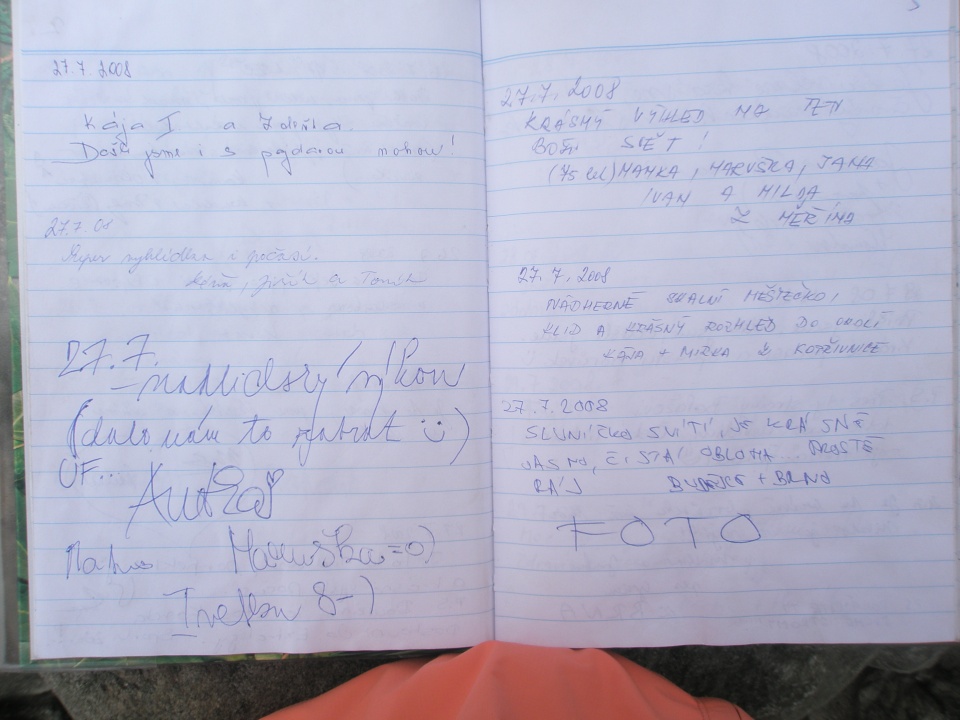 27.7. 2008
Kája I a Zdeňka.
Došli jsme i s nohou!
27.7. 08
i počasí.
Jiřík a Toník
27.7.
výkon
(dalo nám to zabrat Ü)
UF...
Maruška =o)
8-)
27.7. 2008
KRÁSNÝ VÝHLED NA TEN
BOŽÍ SVĚT!
(75 let) MAMKA, MARUŠKA, JANA
IVAN A MILDA
Z MĚŘÍNA
27. 7. 2008
NÁDHERNÉ SKALNÍ MĚSTEČKO,
KLID A KRÁSNÝ ROZHLED DO OKOLÍ
KÁJA + MIRKA Z KOPŘIVNICE
27. 7. 2008
SLUNÍČKO SVÍTÍ, JE KRÁSNĚ
JASNO, ČISTÁ OBLOHA PROSTĚ
RÁJ + BRNO
FOTO